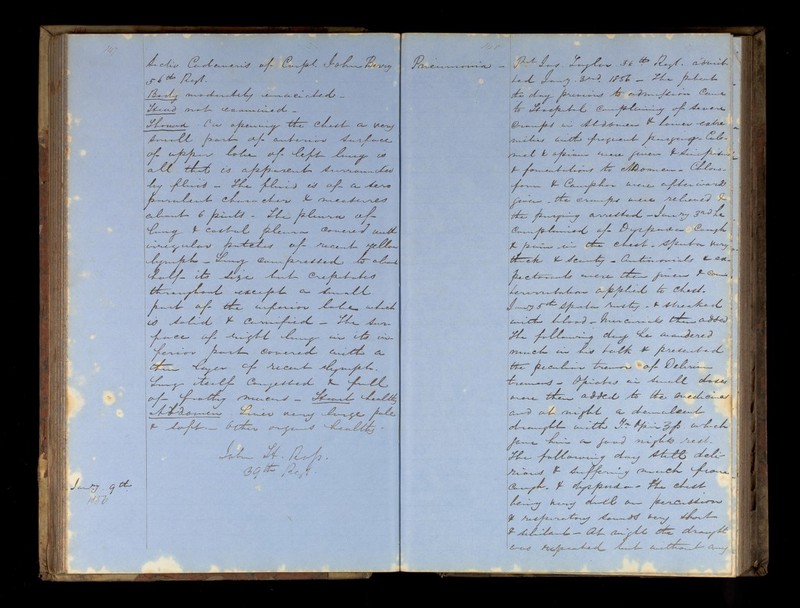 Sectio Cadaveris of Corpl John Berry
56th Regt.
Body moderately emaciated -
Head not examined -
Thorax On opening the chest a very
small part of anterior surface
of upper lobe of left lung is
all that is apparent surrounded
by fluid - The fluid is of a sero
purulent character & measures
about 6 pints - The pleura of
lung & costal pleura covered with
irregular patches of recent yellow
lymph - Lung compressed to about
half its size but crepitates
throughout except a small
part of the inferior lobe which
is solid & carnified - The sur
face of right lung in its in
ferior part covered with a
thin layer of recent lymph.
Lung itself congested & full
of frothy mucus - Heart healthy
Abdomen Liver very large pale
& soft - Other organs healthy -
John H. Ross.
39th Regt
Jany 9th
1856
Pneumonia -
Pt Jas Taylor 36th Regt. admit
ted Jany 2nd 1856 - The patient
to day previous to admission came
to Hospital complaining of severe
cramps in Abdomen & lower extre
mities with frequent purging. Calo
mel & opium were given & sinapisms
& fomentations to Abdomen - Chloro
form & Camphor were afterwards
given - the cramps were relieved &
the purging arrested - Jany 3rd he
complained of Dyspnoea Cough
& pain in the chest - Sputa very
thick & scanty - Antimonials & ex
pectorants were then given &
applied to chest.
Jany 5th Sputa rusty & streaked
with blood - Mercurials then added
The following day he wandered
much in his talk & presented
the peculiar tremor of Delirium
tremens - Opiates in small doses
were then added to the medicines
and at night a stimulant
draught with which
gave him a good nights rest.
The following day still deli
rious & suffering much from
cough & dyspnoea - The chest
being very dull on percussion
& respiratory sounds very short
& sibilant - At night the draught
was repeated but without any